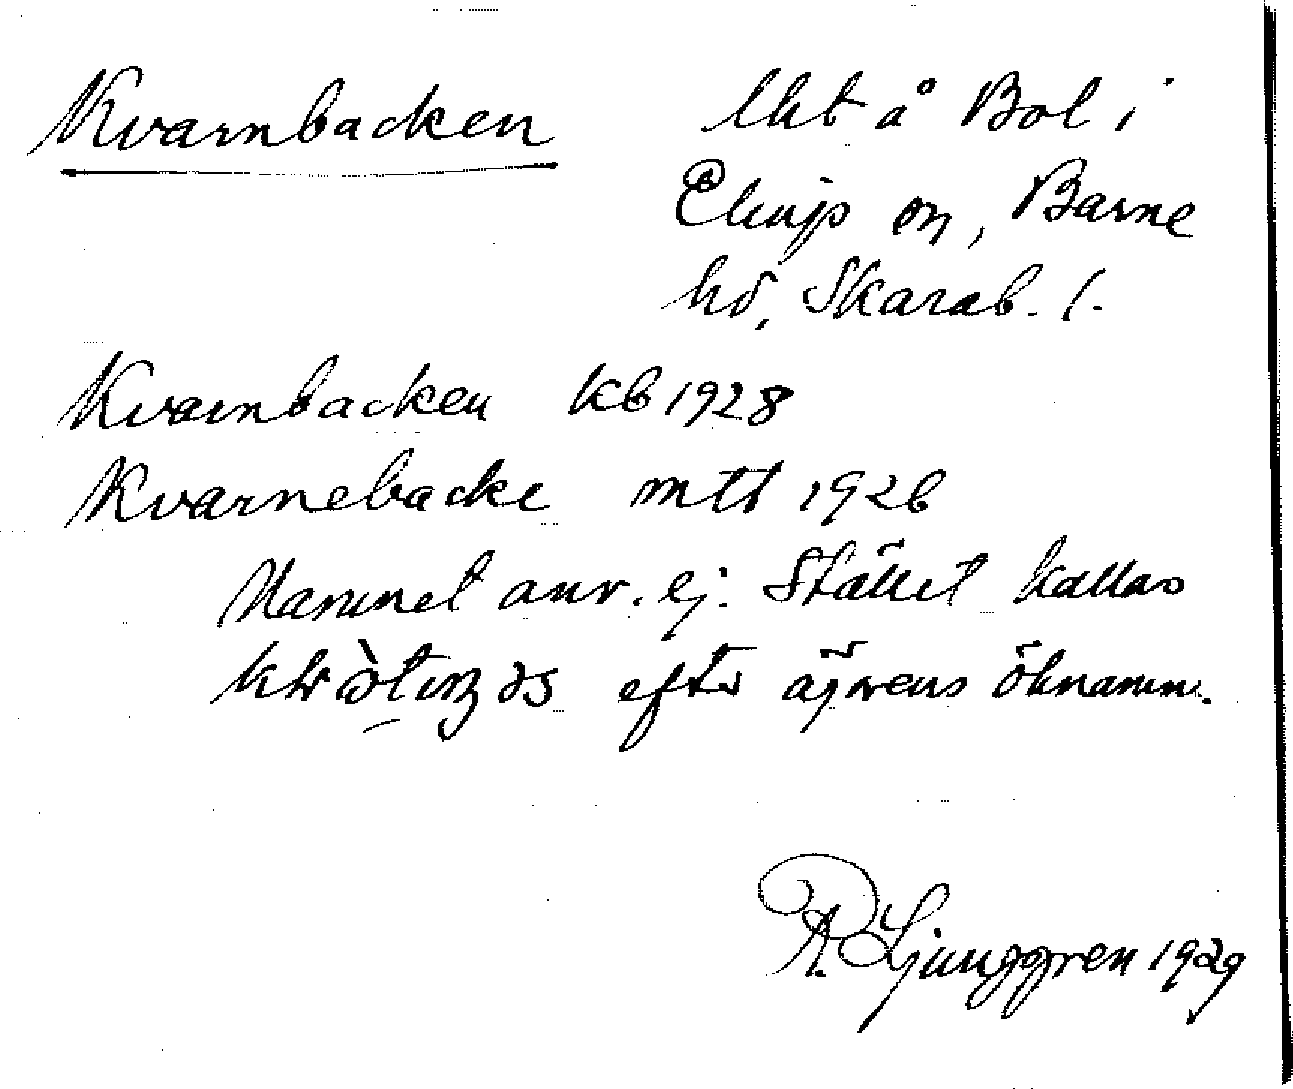 Kvarnbacken
lht å Bol i
Elings sn, Barne
hd, Skarab. l.
Kvarnbacken kb 1928
Kvarnebacke mtl 1926
Namnet anv. ej. Stället kallas
efter ägarens öknamn.
R Ljunggren 1929